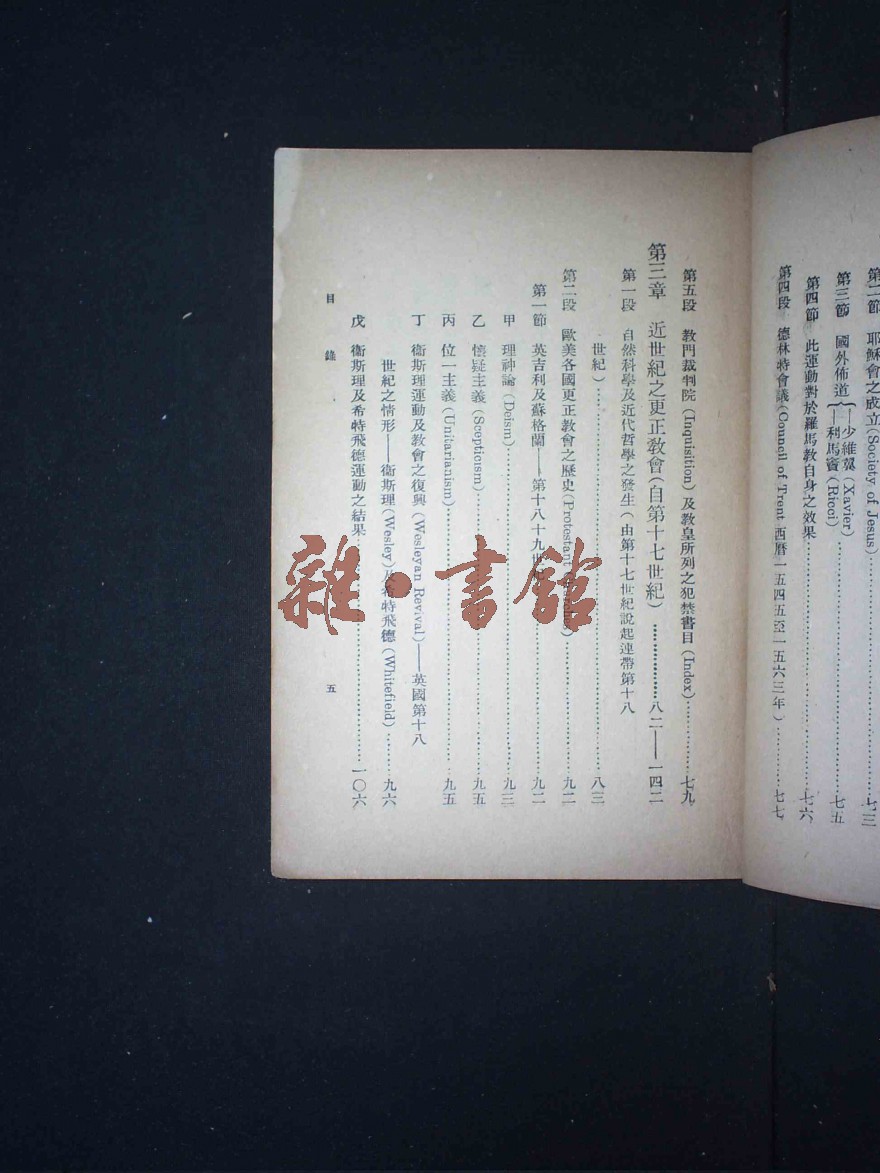 第二節 耶穌會之成立(Society of Jesus)……七三
第三節 國外佈道{——少維翼(Xavier) ——利馬竇(Ricci)……七五
第四節 此運動對於羅馬教自身之效果……七六
第四段 德林特會議(Council of Trent 西曆一五四五至一五六三年)……七七
第五段 教門裁判院(Inquisition)及教皇所列之犯禁書目(Index)……七九
第三章 近世紀之更正敎會(自第十七世紀)……八二——一四二
第一段 自然科學及近代哲學之發生(由第十七世紀說起連帶第十八
世紀)……八三
第二段 歐美各國更正敎會之歷史(Protestant……九二
第一節 英吉利及蘇格蘭——第十八十九世……九二
甲 理神論(Deism)……九三
乙 懷疑主義(Scepticism)……九五
丙 位一主義(Unitarianism)……九五
丁 衞斯理運動及敎會之復興(Wesleyan Revival)——英國第十八
世紀之情形——衞斯理(Wesley)及希特飛德(Whitefield)……九六
戊 衞斯理及希特飛德運動之結果……一〇六
目錄
五
雜·書館